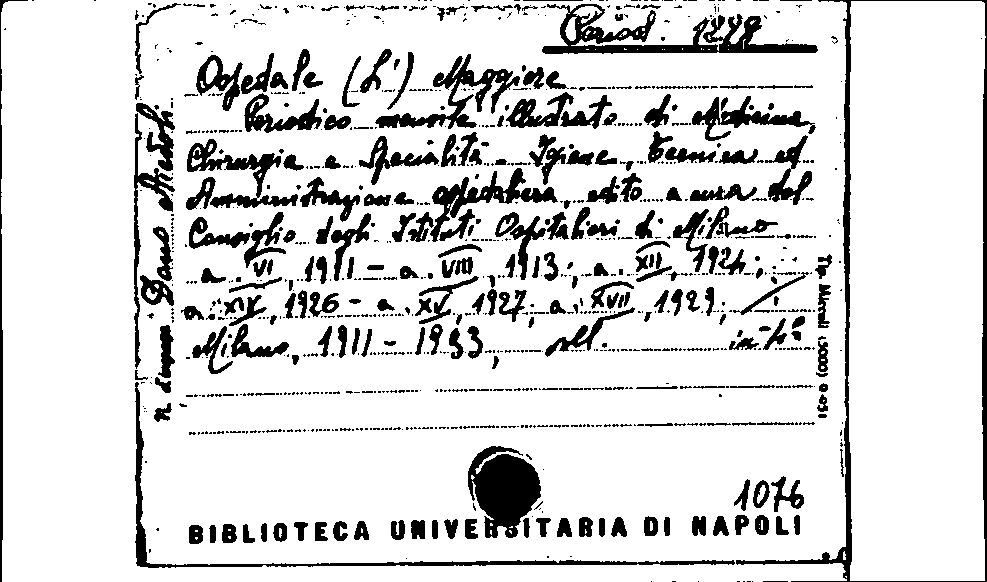 Period. 1298
Ospedale (L') Maggiore
Periodico mensile illustrato di Medicina,
Chirurgia e Specialità - Igiene, Tecnica ed
Amministrazione ospedaliera, edito a cura del
Consiglio degli Istituti Ospitalieri di Milano.
a. VI, 1911 - a. VIII, 1913; a. XII, 1924;
a. XIV, 1926 - a. XV, 1927; a. XVII, 1929;
Milano, 1911 - 1933, in-4°
N. d'ingresso Dono
Tip. (5000) 9-051
1076
BIBLIOTECA UNIVERSITARIA DI NAPOLI